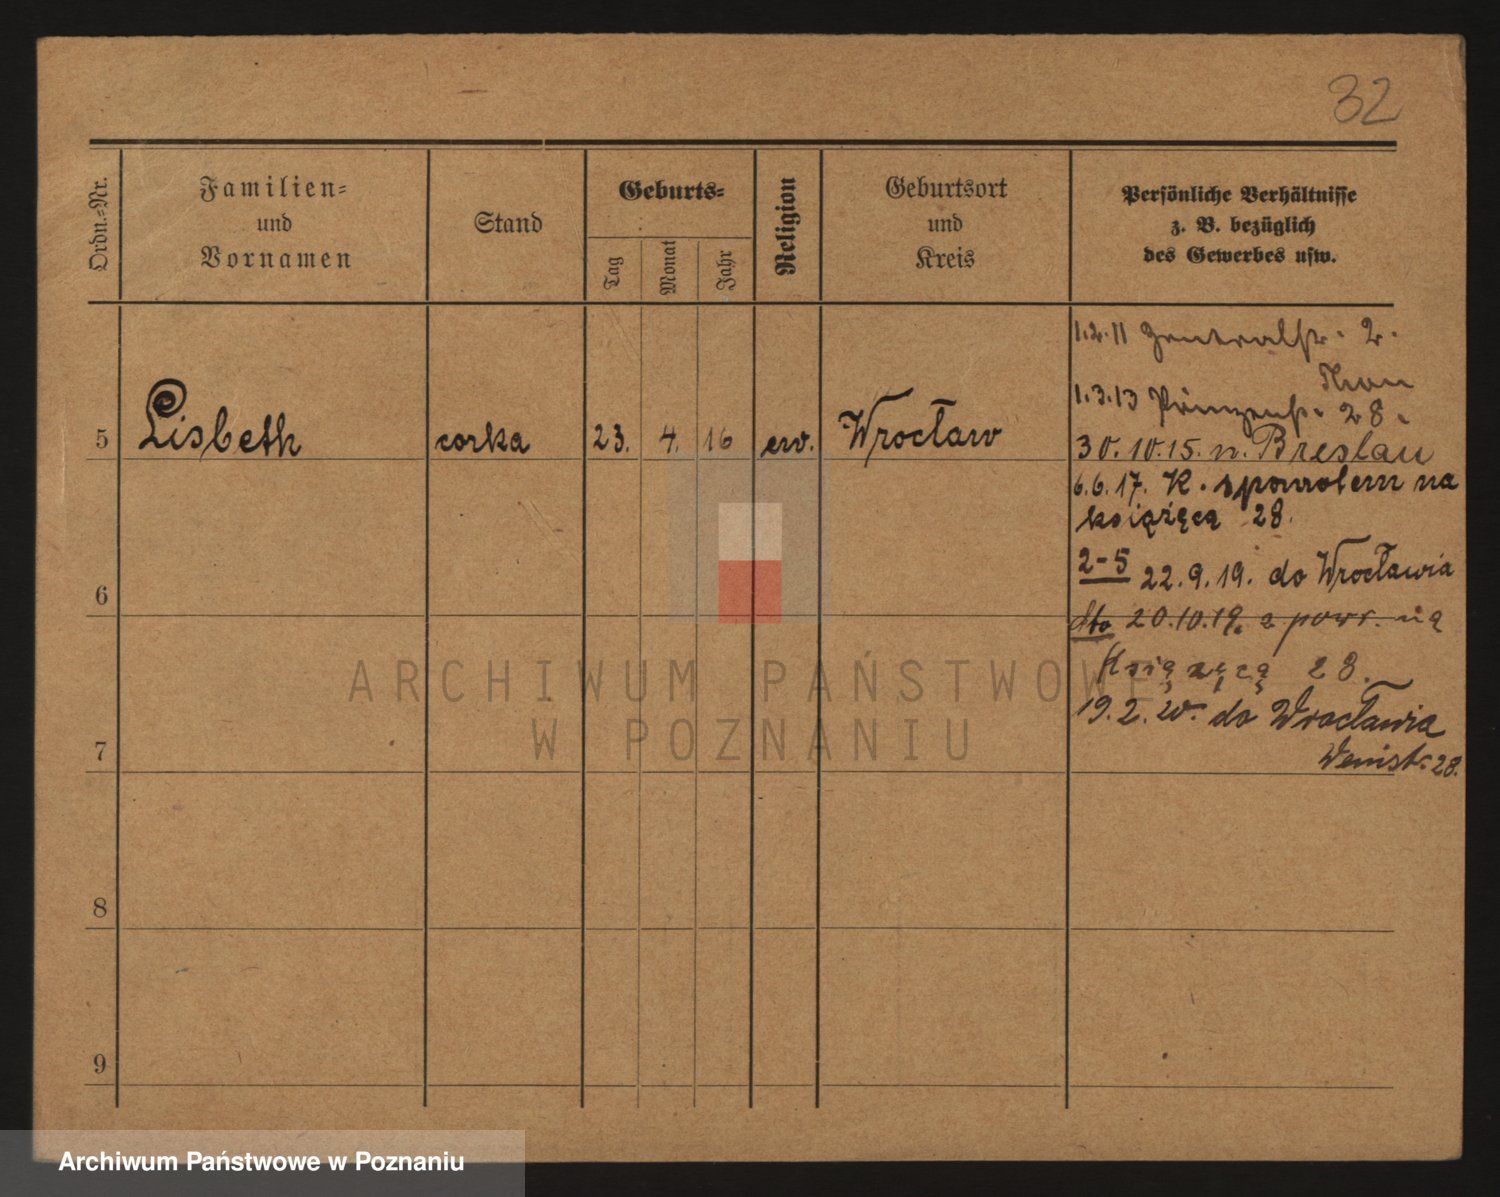 32
Ordn.-Nr.
Familien-
und
Vornamen
Stand
Geburts-
Tag
Monat
Jahr
Religion
Geburtsort
und
Kreis
Persönliche Verhältnisse
z. B. bezüglich
des Gewerbes usw.
1.2.11 Zentralstr. 2.
1.3.13 Prinzenstr. 28.
5 Lisbeth corka 23. 4. 16 ew. Wrocław
30.10.15. n. Breslau
6.6.17. K. spowrotem na
książęcą 28.
2-5 22.9.19. do Wrocławia
6
dto 20.10.19. z powr. na
Książęcą 28.
19.2.20. do Wrocławia
28.
7
8
9
ARCHIWUM PAŃSTWOWE
W POZNANIU
Archiwum Państwowe w Poznaniu